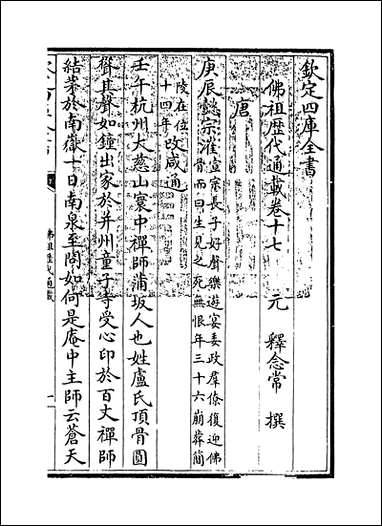 欽定四庫全書
佛祖歴代通載卷十七
元 釋念常 撰
唐
庚辰懿宗漼宣宗長子好聲樂遊宴委政羣僚復迎佛
骨而曰生見之死無恨年三十六崩葬簡
陵在位
十四年改咸通
壬午杭州大慈山寰中禪師蒲坂人也姓盧氏頂骨圓
聳其聲如鐘出家於并州童子寺受心印於百丈禪師
結茅於南嶽一日南泉至問如何是庵中主師云蒼天
佛祖歴代通載
一